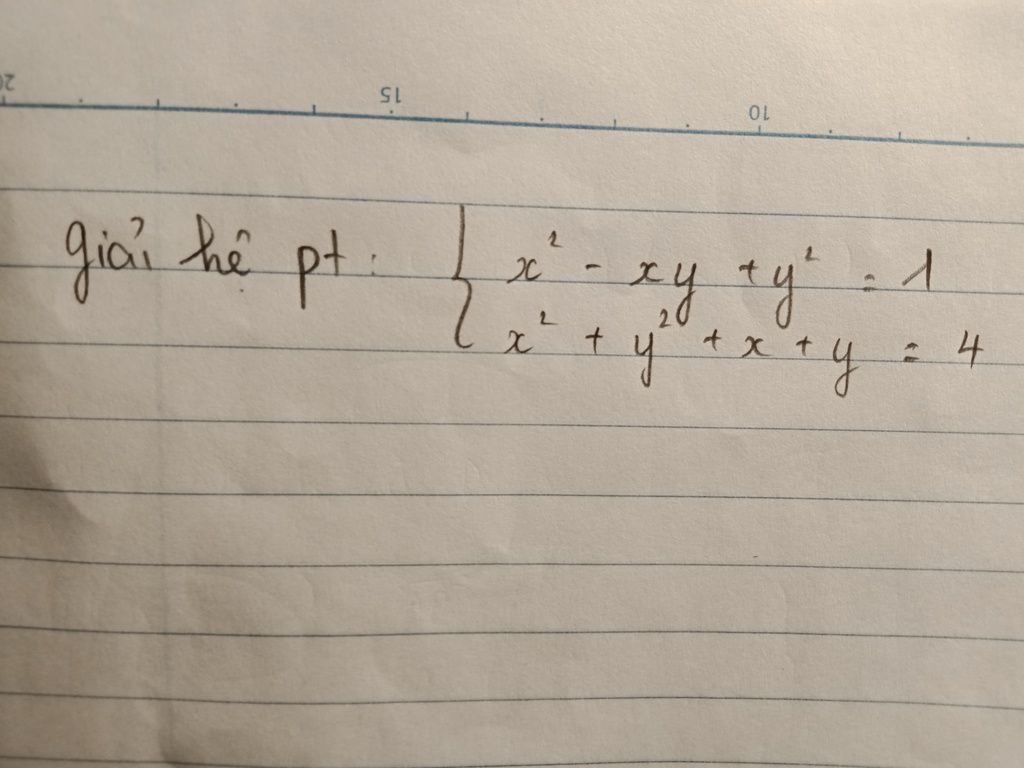 20 15 10
giải hệ pt: { x² - xy + y² = 1
x² + y² + x + y = 4